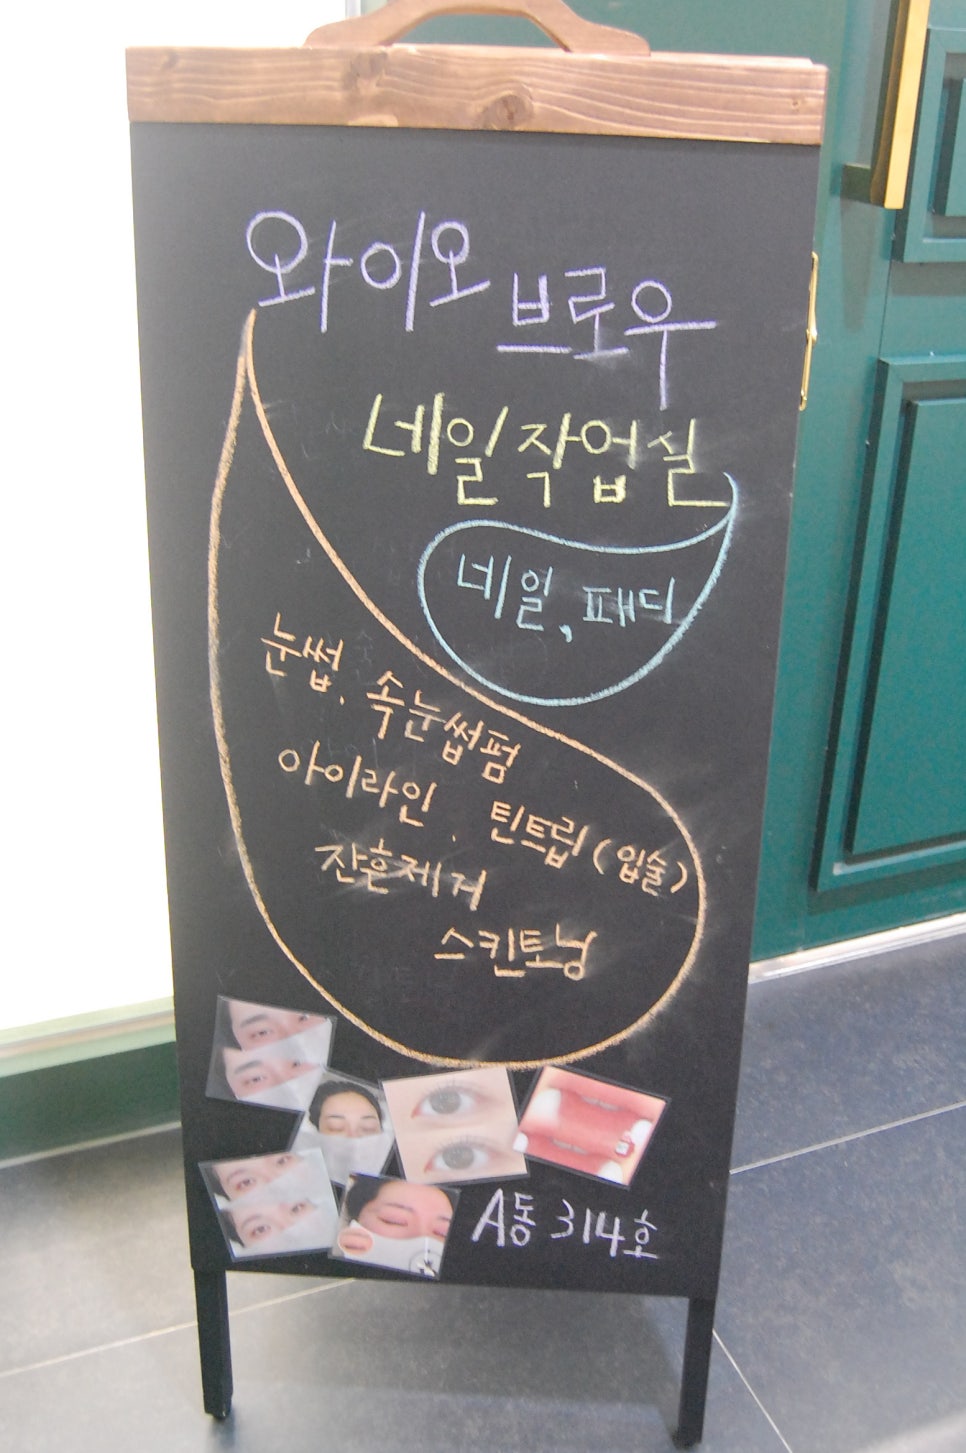 와이오 브로우
네일작업실
네일, 패디
눈썹, 속눈썹펌
아이라인, 틴트립(입술)
잔흔제거
스킨토닝
A동 314호